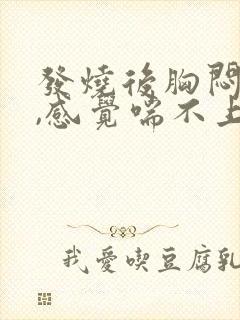 發燒後胸悶
,感覺喘不上
我愛喫豆腐乳